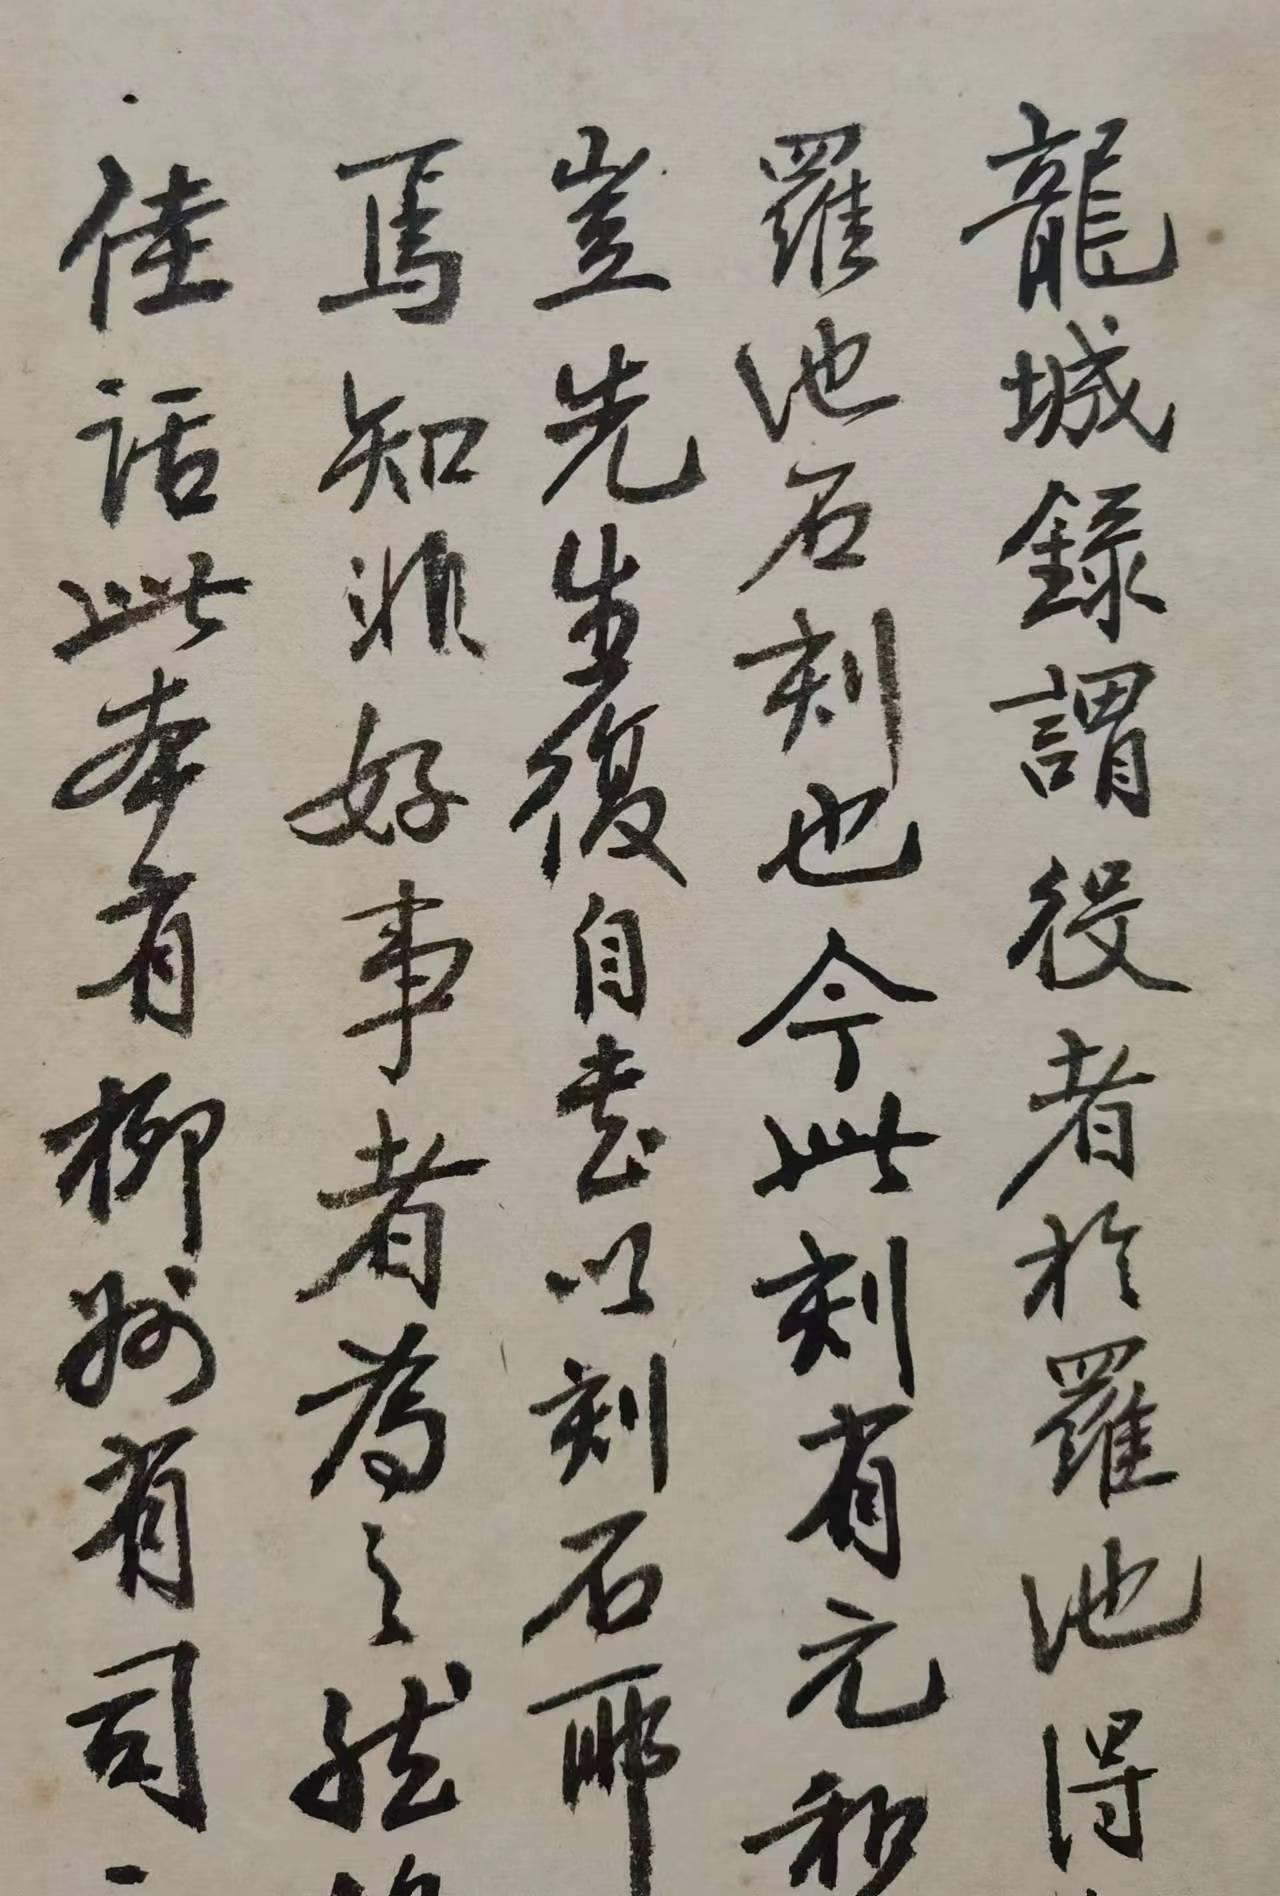 龍城録謂役者於羅池得
羅池石刻也今此刻有元和
豈先生復自書以刻石耶
焉知非好事者為之然
佳話此本有柳州有司